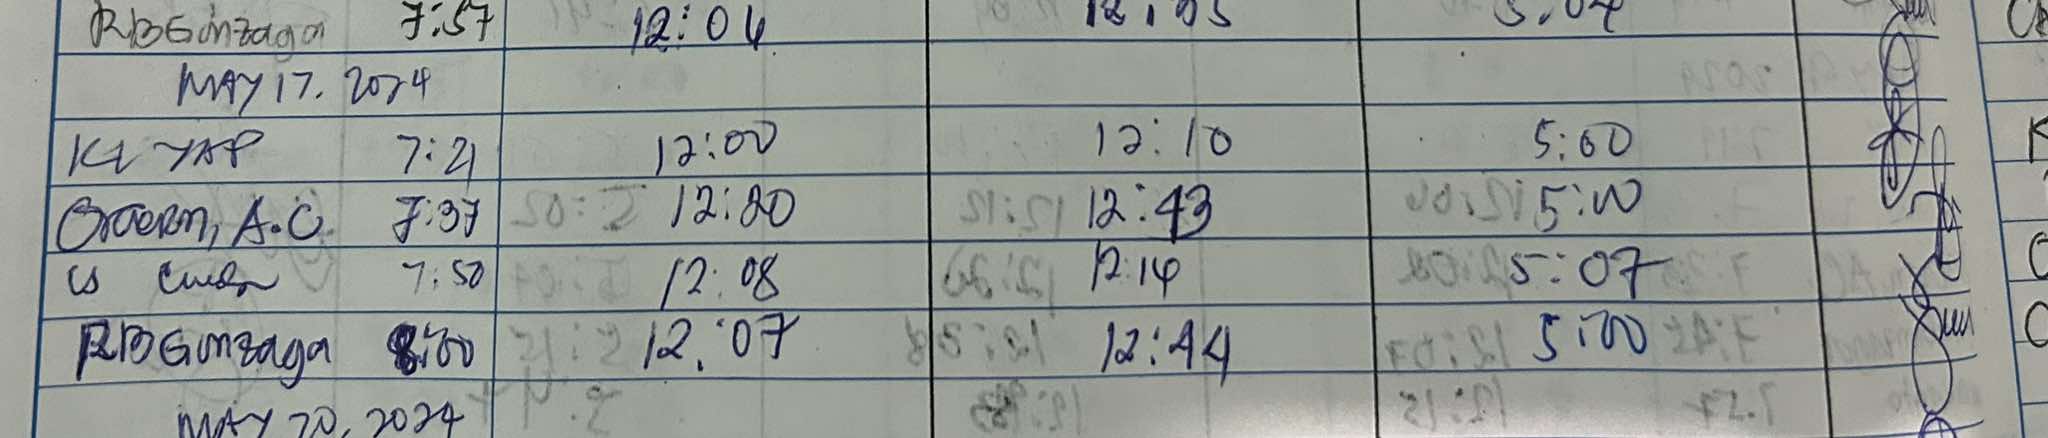 RBGonzaga 7:57 12:04
MAY 17, 2024
KL YAP 7:21 12:00 12:10 5:00
A.C. 7:37 12:20 12:43 5:00
7:50 12:08 12:14 5:07
RBGonzaga 8:00 12:07 12:44 5:00
MAY 20, 2024